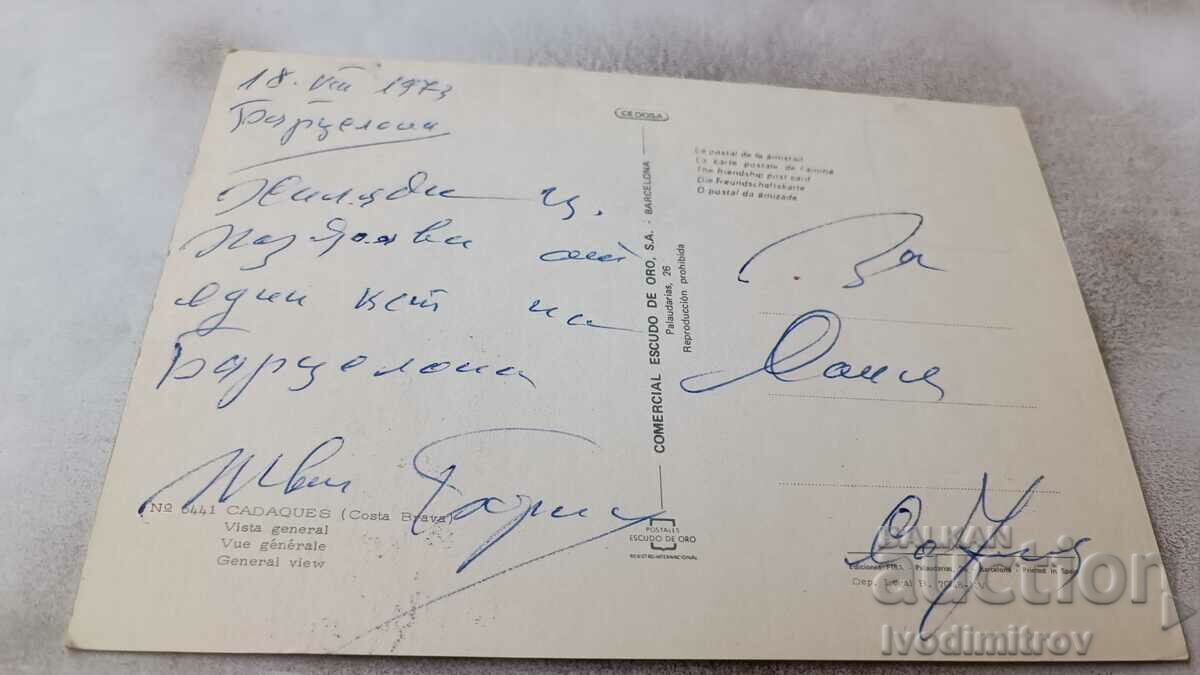 18. VIII 1973
Барцелона
Хиляди
поздрави от
един кът на
Барцелона
Иван
Nº 6441 CADAQUES (Costa Brava)
Vista general
Vue générale
General view
CEDOSA
COMERCIAL ESCUDO DE ORO, S.A. - BARCELONA
Palaudarias, 26
Reproducción prohibida
POSTALES
ESCUDO DE ORO
REGISTRO INTERNACIONAL
La postal de la amistad
La carte postale de l'amitié
The friendship post card
Die Freundschaftskarte
O postal da amizade
За
София
Dep. Legal B.
BALKAN
auction
lvodimitrov